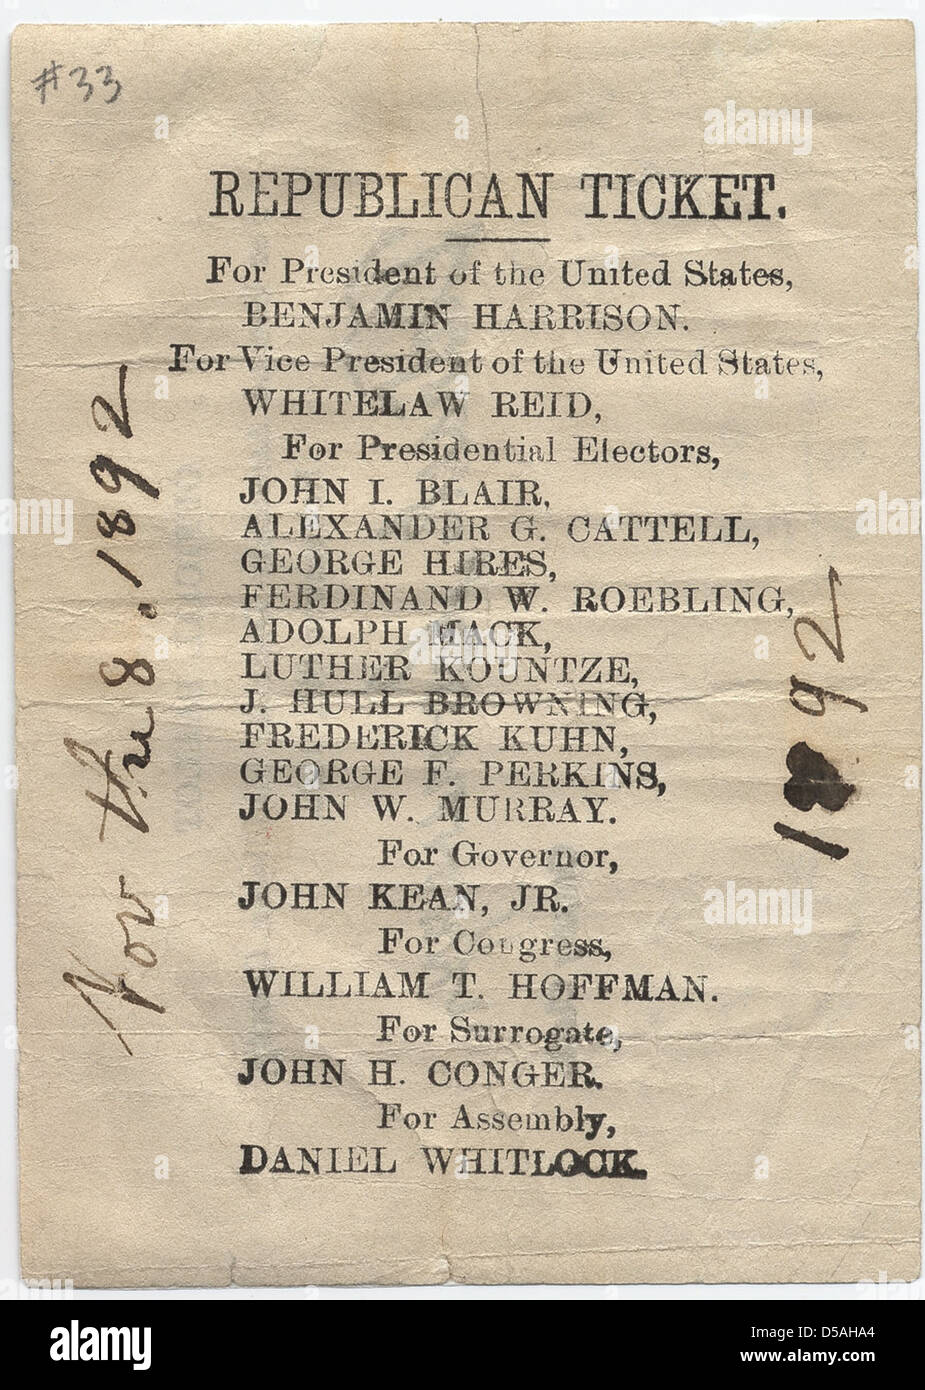 #33
REPUBLICAN TICKET.
For President of the United States,
BENJAMIN HARRISON.
For Vice President of the United States,
WHITELAW REID,
For Presidential Electors,
JOHN I. BLAIR,
ALEXANDER G. CATTELL,
GEORGE HIRES,
FERDINAND W. ROEBLING,
ADOLPH MACK,
LUTHER KOUNTZE,
J. HULL BROWNING,
FREDERICK KUHN,
GEORGE F. PERKINS,
JOHN W. MURRAY.
For Governor,
JOHN KEAN, JR.
For Congress,
WILLIAM T. HOFFMAN.
For Surrogate,
JOHN H. CONGER.
For Assembly,
DANIEL WHITLOCK.
Nov the 8.1892
1892
alamy
alamy
Image ID: D5AHA4
www.alamy.com